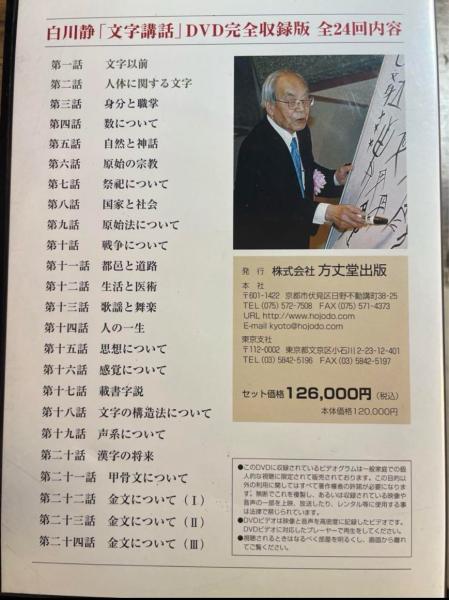 白川静「文字講話」DVD完全収録版 全24回内容
第一話 文字以前
第二話 人体に関する文字
第三話 身分と職掌
第四話 数について
第五話 自然と神話
第六話 原始の宗教
第七話 祭祀について
第八話 国家と社会
第九話 原始法について
第十話 戦争について
第十一話 都邑と道路
第十二話 生活と医術
第十三話 歌謡と舞楽
第十四話 人の一生
第十五話 思想について
第十六話 感覚について
第十七話 載書字説
第十八話 文字の構造法について
第十九話 声系について
第二十話 漢字の将来
第二十一話 甲骨文について
第二十二話 金文について(Ⅰ)
第二十三話 金文について(Ⅱ)
第二十四話 金文について(Ⅲ)
発 行 株式会社 方丈堂出版
本 社
〒601-1422 京都市伏見区日野不動講町38-25
TEL(075)572-7508 FAX(075)571-4373
URL http://www.hojodo.com
E-mail kyoto@hojodo.com
東京支社
〒112-0002 東京都文京区小石川2-23-12-401
TEL(03)5842-5196 FAX(03)5842-5197
セット価格 126,000円(税込)
本体価格120,000円
●このDVDに収録されているビデオグラムは一般家庭での個
人的な視聴に限定されて販売されております。この目的以
外の利用に関してはすべて著作権者の許諾が必要になりま
す。無断でこれを複製し、あるいは収録されている映像や
音声の一部を上映、放送したり、レンタル等に使用する事
は法律で禁じられています。
●DVDビデオは映像と音声を高密度に記録したビデオです。
DVDビデオに対応したプレーヤーで再生をしてください。
●視聴されるときはなるべく部屋を明るくし、画面から離れ
てご覧ください。